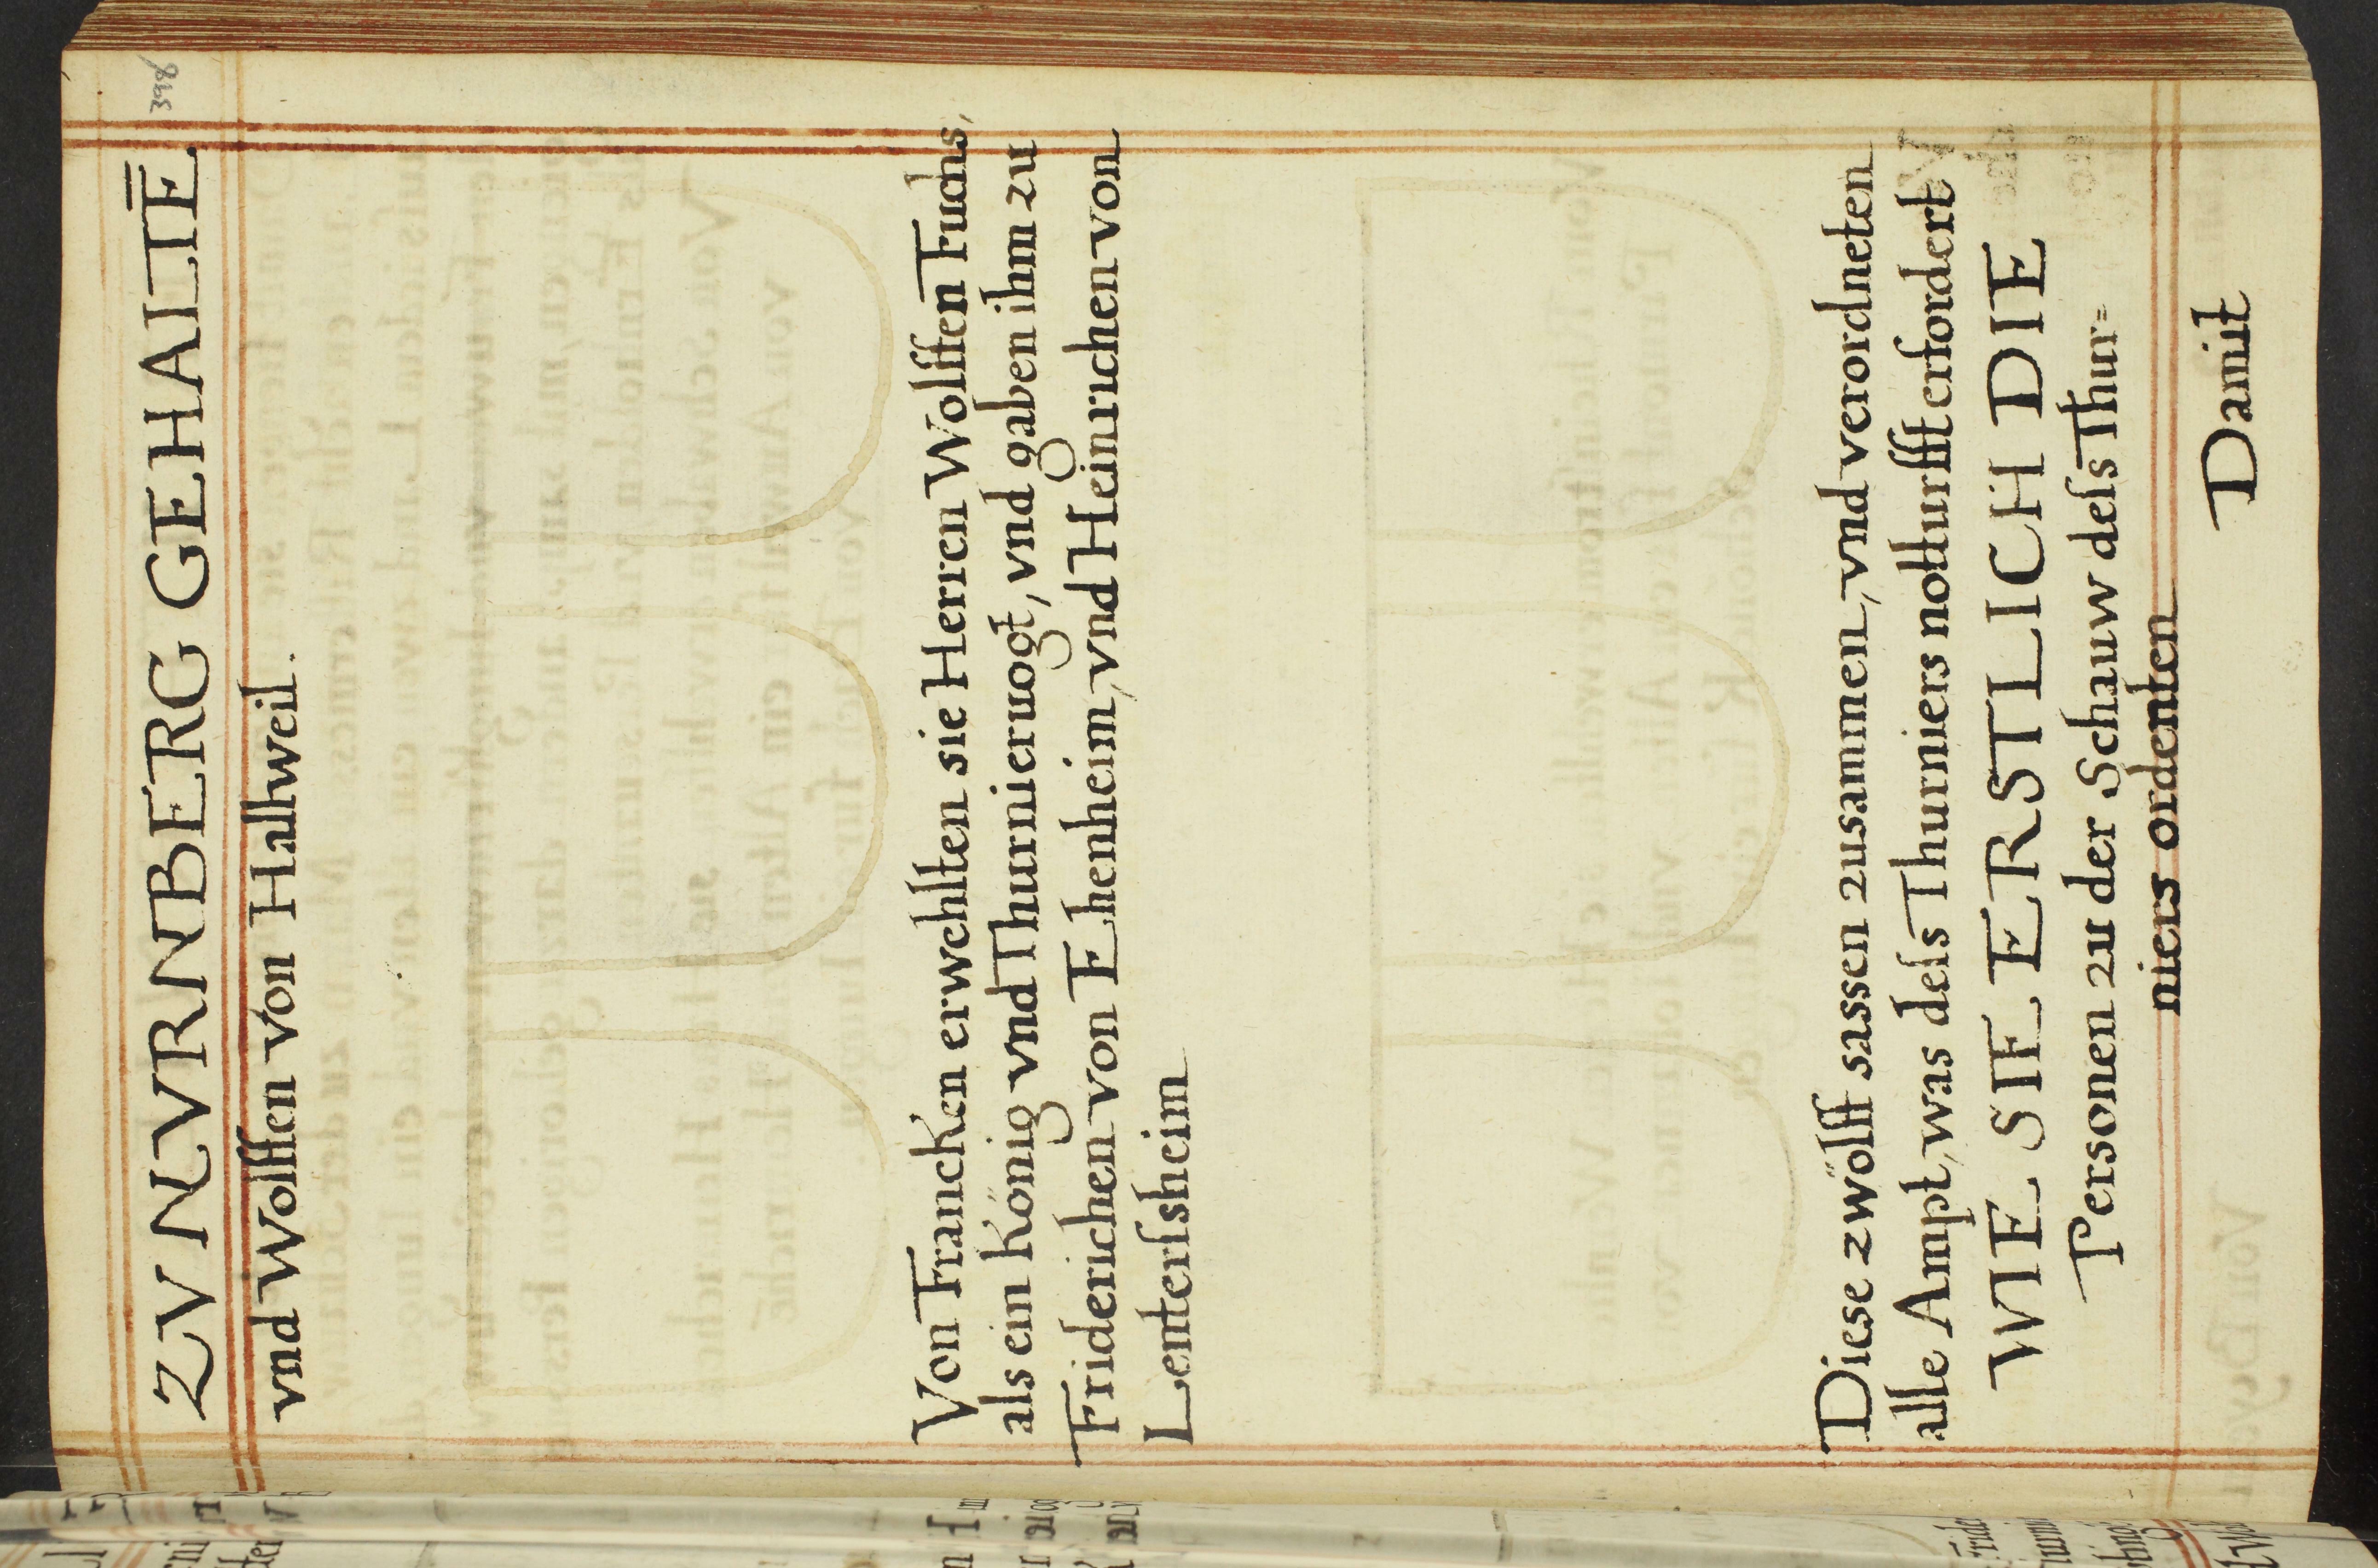 ZV NVRNBERG GEHALTĒ.
398
vnd Wolffen von Hallweil.
Von Francken erwehlten sie Herren Wolffen Fuchs,
als ein König vnd Thurnieruogt, vnd gaben ihm zu
Friderichen von Ehenheim, vnd Heinrichen von
Lenterſsheim
Diese zwölff sassen zusammen, vnd verordneten
alle Ampt, was deſs Thurniers notturfft erfordert
WIE SIE ERSTLICH DIE
Personen zu der Schauw deſs Thur=
niers ordenten
Damit